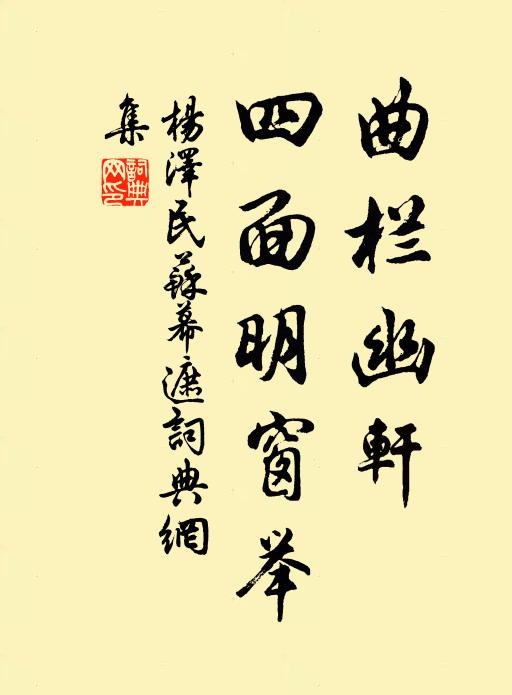 曲栏幽軒
四面明窗举
楊澤民蘇幕遮詞典網
集
詞典
网印